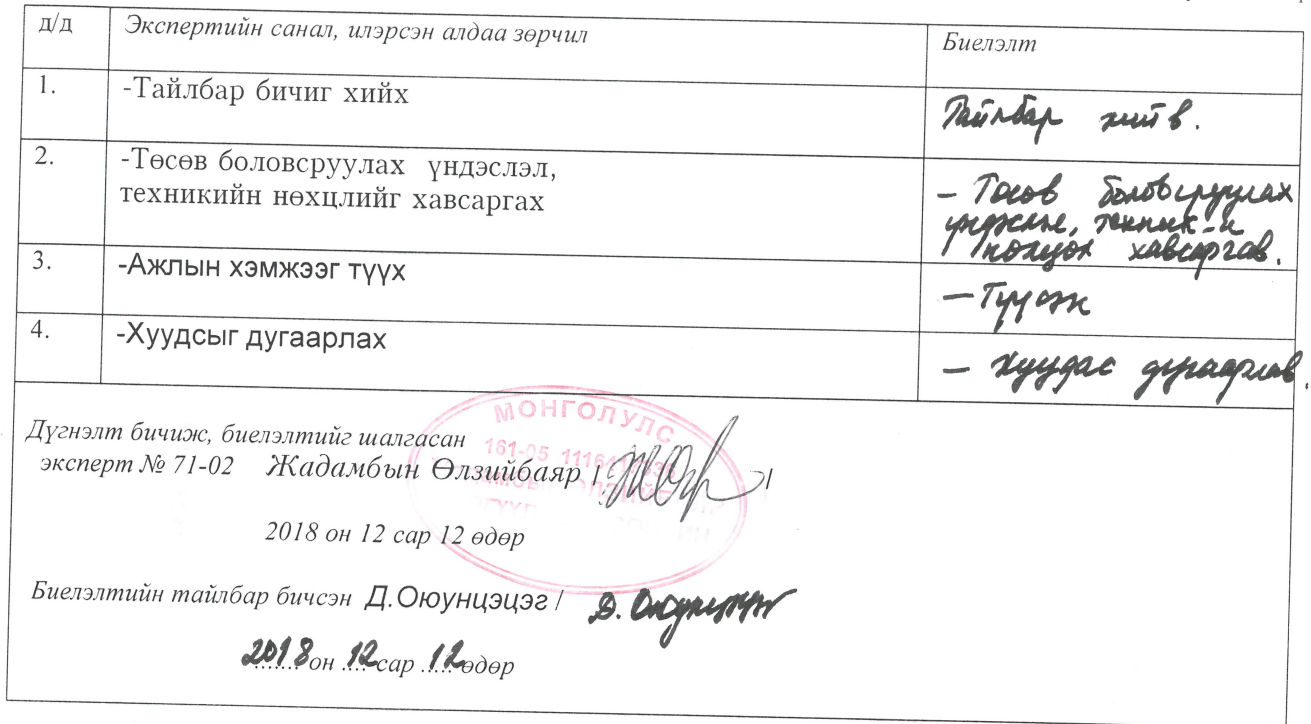 д/д Экспертийн санал, илэрсэн алдаа зөрчил Биелэлт
1. -Тайлбар бичиг хийх Тайлбар хийв.
2. -Төсөв боловсруулах үндэслэл,
техникийн нөхцлийг хавсаргах
- Төсөв боловсруулах
үндэслэл, техник-н
нөхцөл хавсаргав.
3. -Ажлын хэмжээг түүх
- Түүсэн
4. -Хуудсыг дугаарлах
- хуудас дугаарлав.
МОНГОЛ УЛС
161-05
Дүгнэлт бичиж, биелэлтийг шалгасан
эксперт № 71-02 Жадамбын Өлзийбаяр / /
2018 он 12 сар 12 өдөр
Биелэлтийн тайлбар бичсэн Д.Оюунцэцэг / Д. Оюунцэцэг
2018 он 12 сар 12 өдөр